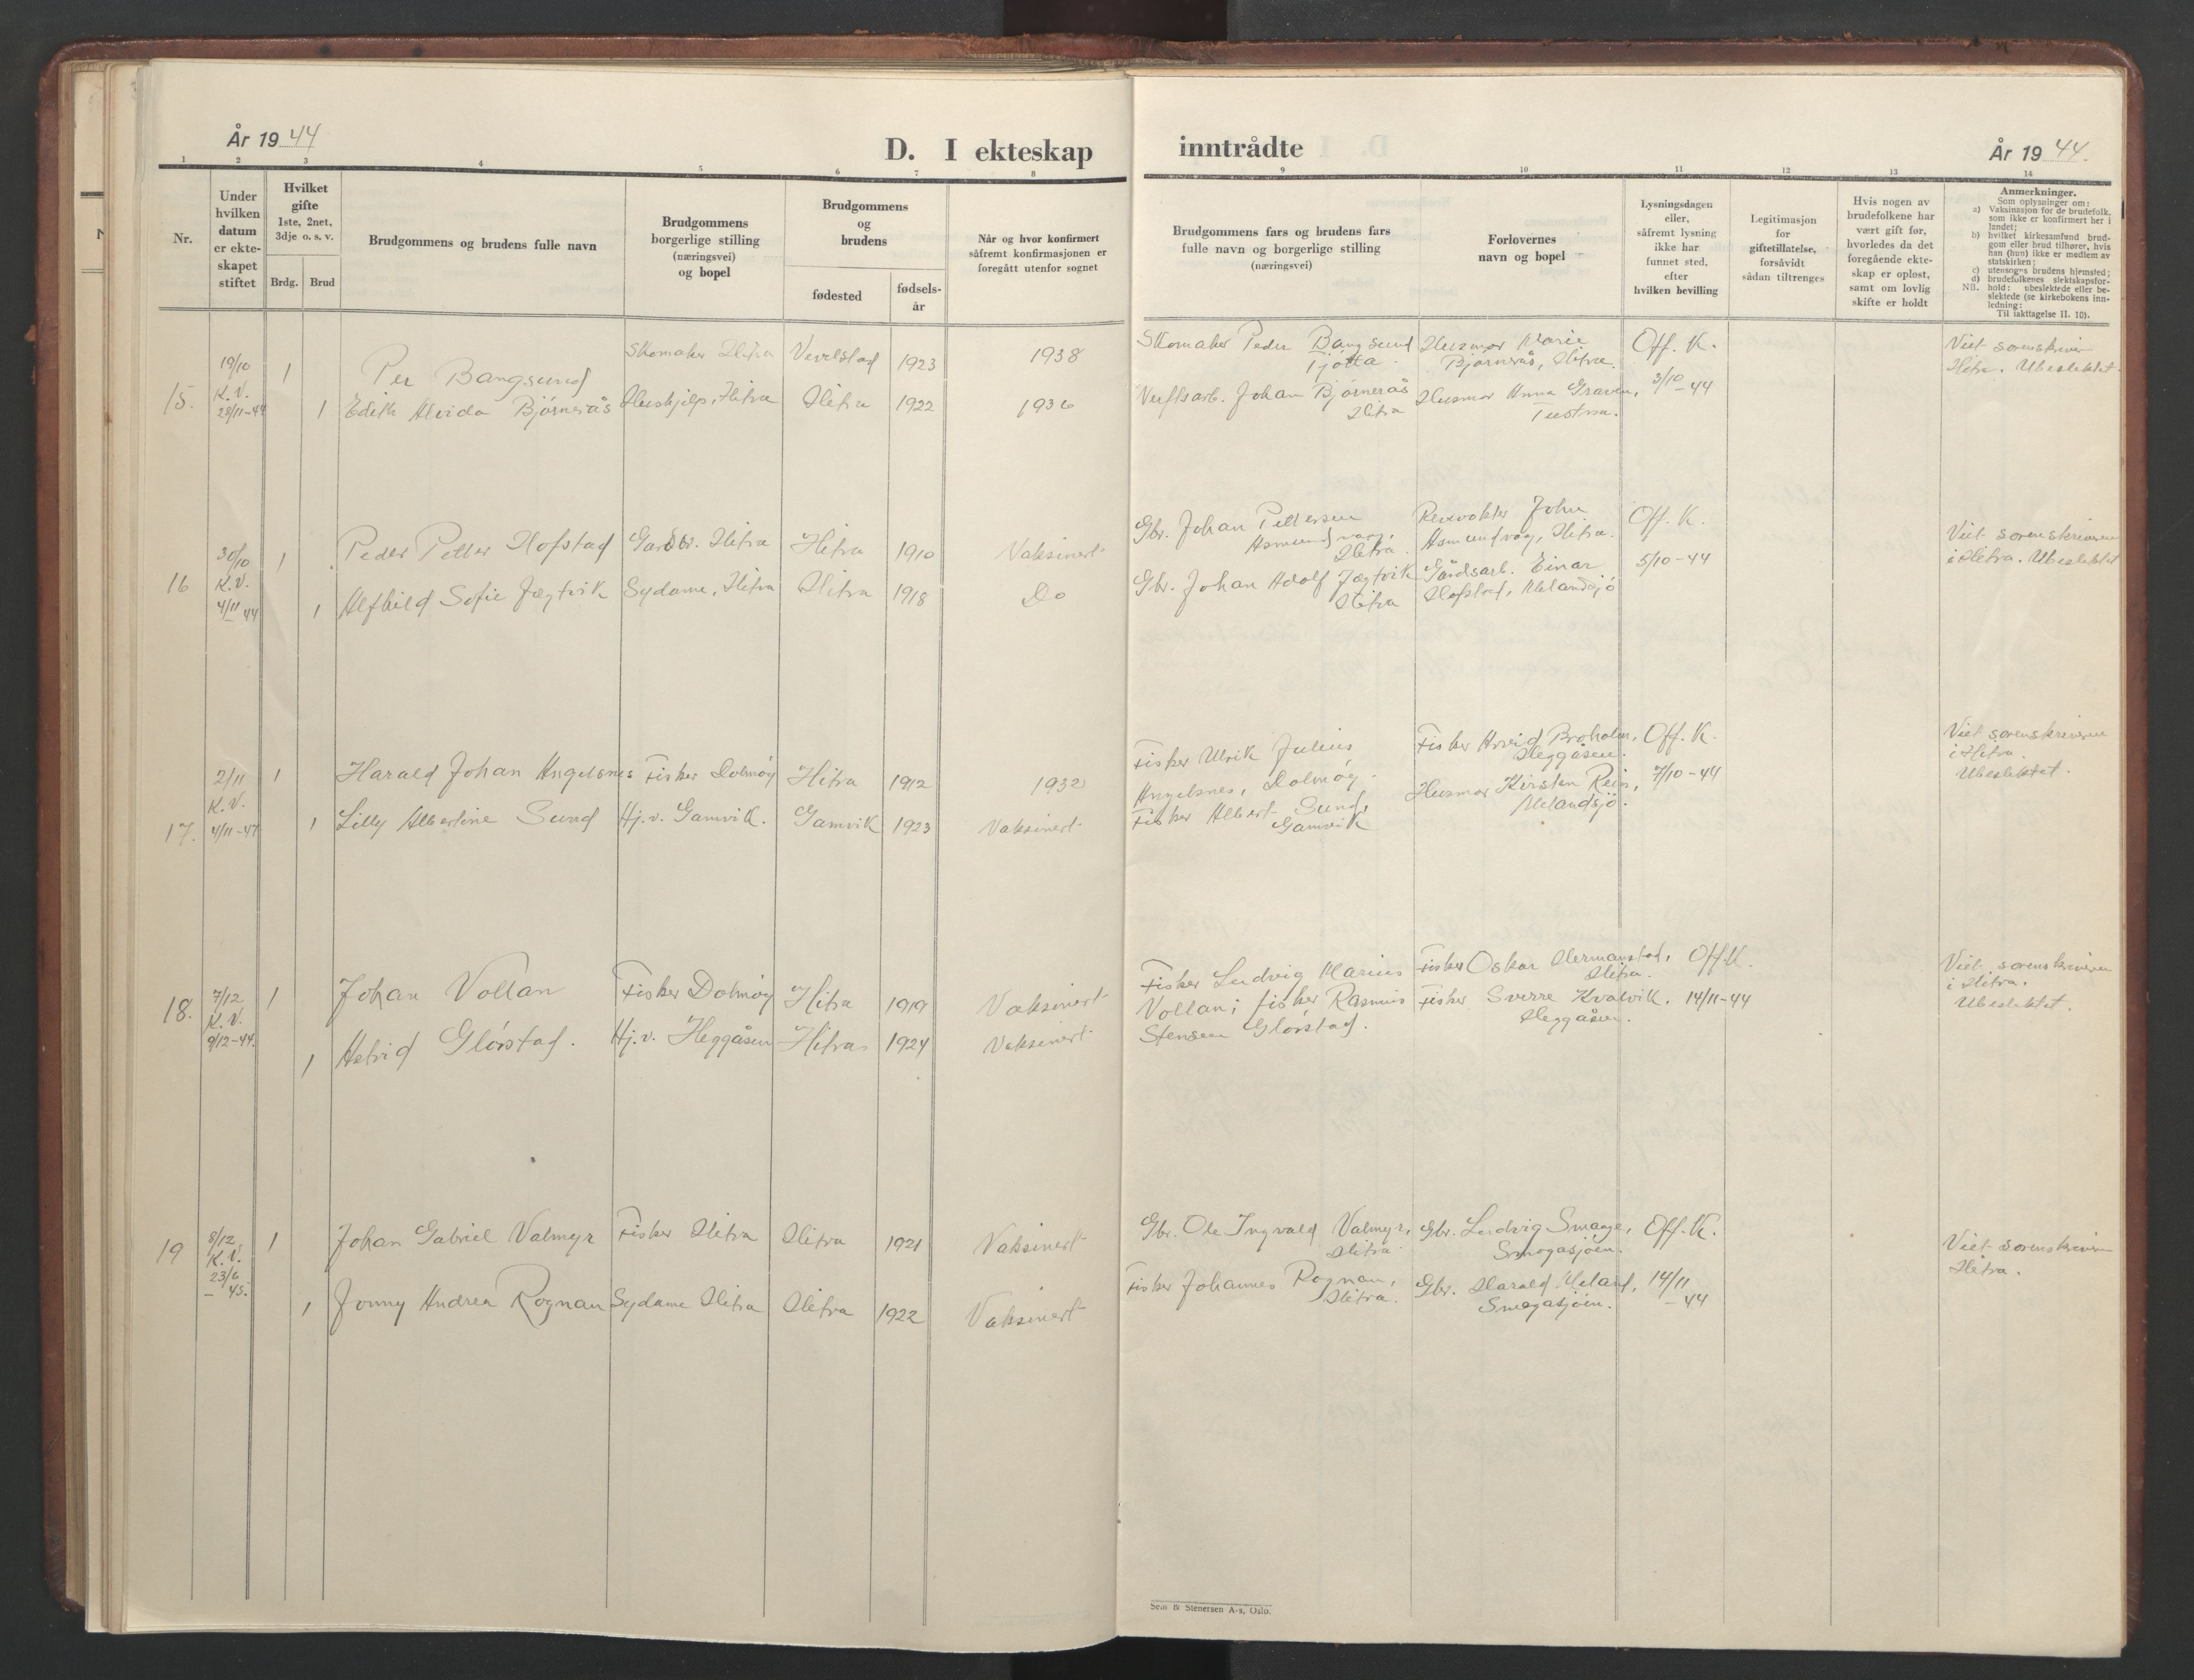 År 1944
D. I ekteskap inntrådte
År 1944.
1 2 3 4 5 6 7 8 9 10 11 12 13 14
Nr.
Under
hvilken
datum
er ekte-
skapet
stiftet
Hvilket
gifte
1ste, 2net,
3dje o. s. v.
Brdg. Brud
Brudgommens og brudens fulle navn
Brudgommens
borgerlige stilling
(næringsvei)
og bopel
Brudgommens
og
brudens
fødested
fødsels-
år
Når og hvor konfirmert
såfremt konfirmasjonen er
foregått utenfor sognet
Brudgommens fars og brudens fars
fulle navn og borgerlige stilling
(næringsvei)
Forlovernes
navn og bopel
Lysningsdagen
eller,
såfremt lysning
ikke har
funnet sted,
efter
hvilken bevilling
Legitimasjon
for
giftetillatelse,
forsåvidt
sådan tiltrenges
Hvis nogen av
brudefolkene har
vært gift før,
hvorledes da det
foregående ekte-
skap er opløst,
samt om lovlig
skifte er holdt
Anmerkninger.
Som oplysninger om:
a) Vaksinasjon for de brudefolk,
som ikke er konfirmert her i
landet;
b) hvilket kirkesamfund brud-
gom eller brud tilhører, hvis
han (hun) ikke er medlem av
statskirken;
c) utensogns brudens hjemsted;
d) brudefolkenes slektskapsfor-
NB. hold: ubeslektede eller be-
slektede (se kirkebokens inn-
ledning:
Til iakttagelse II. 10).
15.
19/10
K.V.
28/11-44
1
Per Bangsund
Skomaker Hitra
Vevelstad
1923
1938
Skomaker Peder Bangsund
Tjøtta
Husmor Marie
Bjørnerås, Hitra.
Off. K.
Viet sorenskriver
Hitra. Ubeslektet.
1
Edith Alvida Bjørnerås
Hushjelp, Hitra
Hitra
1922
1936
Verftsarb. Johan Bjørnerås
Hitra
Husmor Anna Graven,
Tustna.
3/10-44
16
30/10
K.V.
4/11 44
1
Peder Petter Hofstad
Gardbr. Hitra
Hitra
1910
Vaksinert
Gbr. Johan Pettersen
Asmundvåg,
Hitra.
Revevokter John
Asmundvåg, Hitra.
Off. K.
Viet sorenskriveren
i Hitra. Ubeslektet
1
Alfhild Sofie Jægtvik
Sydame, Hitra
Hitra
1918
Do
Gbr. Johan Adolf Jægtvik
Hitra
Gårdsarb. Einar
Hofstad, Melandsjø
5/10-44
17.
2/11
K.V.
4/11-47
1
Harald Johan Angelsnes
Fisker Dolmøy
Hitra
1912
1932
Fisker Ulrik Julius
Angelsnes, Dolmøy.
Fisker Arvid Broholm,
Heggåsen.
Off. K.
Viet sorenskriveren
i Hitra
Ubeslektet.
1
Lilly Albertine Sund
Hj.v. Gamvik.
Gamvik
1923
Vaksinert
Fisker Albert Sund,
Gamvik
Husmor Kirsten Rein,
Melandsjø.
7/10-44
18.
7/12
K.V.
9/12-44.
1
Johan Vollan
Fisker Dolmøy
Hitra
1919
Vaksinert
Fisker Ludvig Marius
Vollan; fisker Rasmus
Stensen Glørstad.
Fisker Oskar Hermanstad,
Hitra.
Fisker Sverre Kvalvik.
Heggåsen.
Off. K.
14/11-44
Viet sorenskriveren
i Hitra.
Ubeslektet.
1
Astrid Glørstad.
Hj.v. Heggåsen
Hitra
1924
Vaksinert
19
8/12
K.V.
23/6
- 45.
1
Johan Gabriel Valmyr
Fisker Hitra
Hitra
1921
Vaksinert
Gbr. Ole Ingvald Valmyr,
Hitra.
Gbr. Ludvig Smaage,
Smogasjøen.
Off. K.
Viet sorenskriver
Hitra.
1
Jonny Andrea Rognan
Sydame Hitra
Hitra
1922
Vaksinert
Fisker Johannes Rognan,
Hitra.
Gbr. Harald Meland,
Smagasjøen.
14/11
- 44
Sem & Stenersen A-s, Oslo.